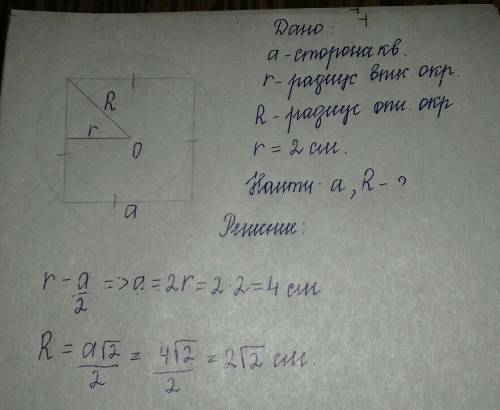 R
r
O
a
Дано:
a - сторона кв.
r - радиус впис. окр.
R - радиус опи. окр
r = 2 см.
Найти: a, R - ?
Решение:
r - a/2 => a = 2r = 2 · 2 = 4 см
R = a√2/2 = 4√2/2 = 2√2 см.